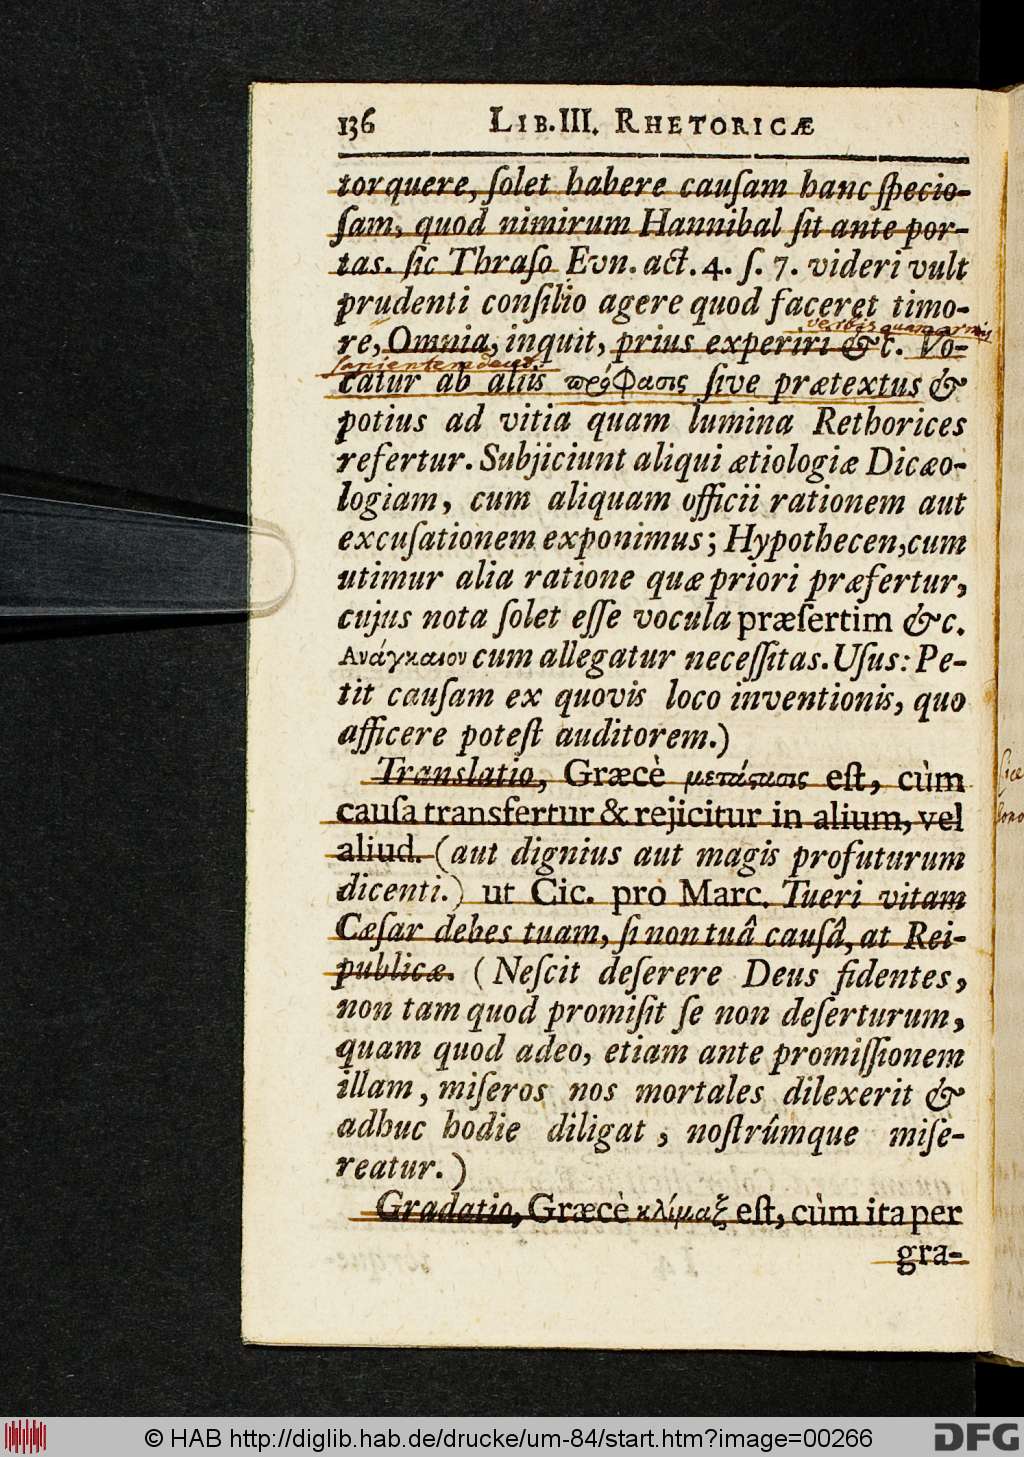 136 LIB. III. RHETORICÆ
torquere, ſolet habere cauſam hanc ſpecio-
ſam, quod nimirum Hannibal ſit ante por-
tas. ſic Thraſo Evn. act. 4. ſ. 7. videri vult
prudenti conſilio agere quod faceret timo-
verbis quam armis
re, Omnia, inquit, prius experiri &c. Vo-
sapientem decet
catur ab aliis πρόφασις ſive prætextus &
potius ad vitia quam lumina Rethorices
refertur. Subjiciunt aliqui ætiologiæ Dicæo-
logiam, cum aliquam officii rationem aut
excuſationem exponimus; Hypothecen, cum
utimur alia ratione quæ priori præfertur,
cujus nota ſolet eſſe vocula præſertim &c.
Ανάγκαιον cum allegatur neceſſitas. Uſus: Pe-
tit cauſam ex quovis loco inventionis, quo
afficere poteſt auditorem.)
Translatio, Græcè μετάϛασις eſt, cùm
cauſa transfertur & rejicitur in alium, vel
aliud. (aut dignius aut magis profuturum
dicenti.) ut Cic. pro Marc. Tueri vitam
Cæſar debes tuam, ſi non tuâ cauſâ, at Rei-
publicæ. (Neſcit deſerere Deus fidentes,
non tam quod promiſit ſe non deſerturum,
quam quod adeo, etiam ante promiſſionem
illam, miſeros nos mortales dilexerit &
adhuc hodie diligat, noſtrúmque miſe-
reatur.)
Gradatio, Græcè κλίμαξ eſt, cùm ita per
gra-
© HAB http://diglib.hab.de/drucke/um-84/start.htm?image=00266
DFG